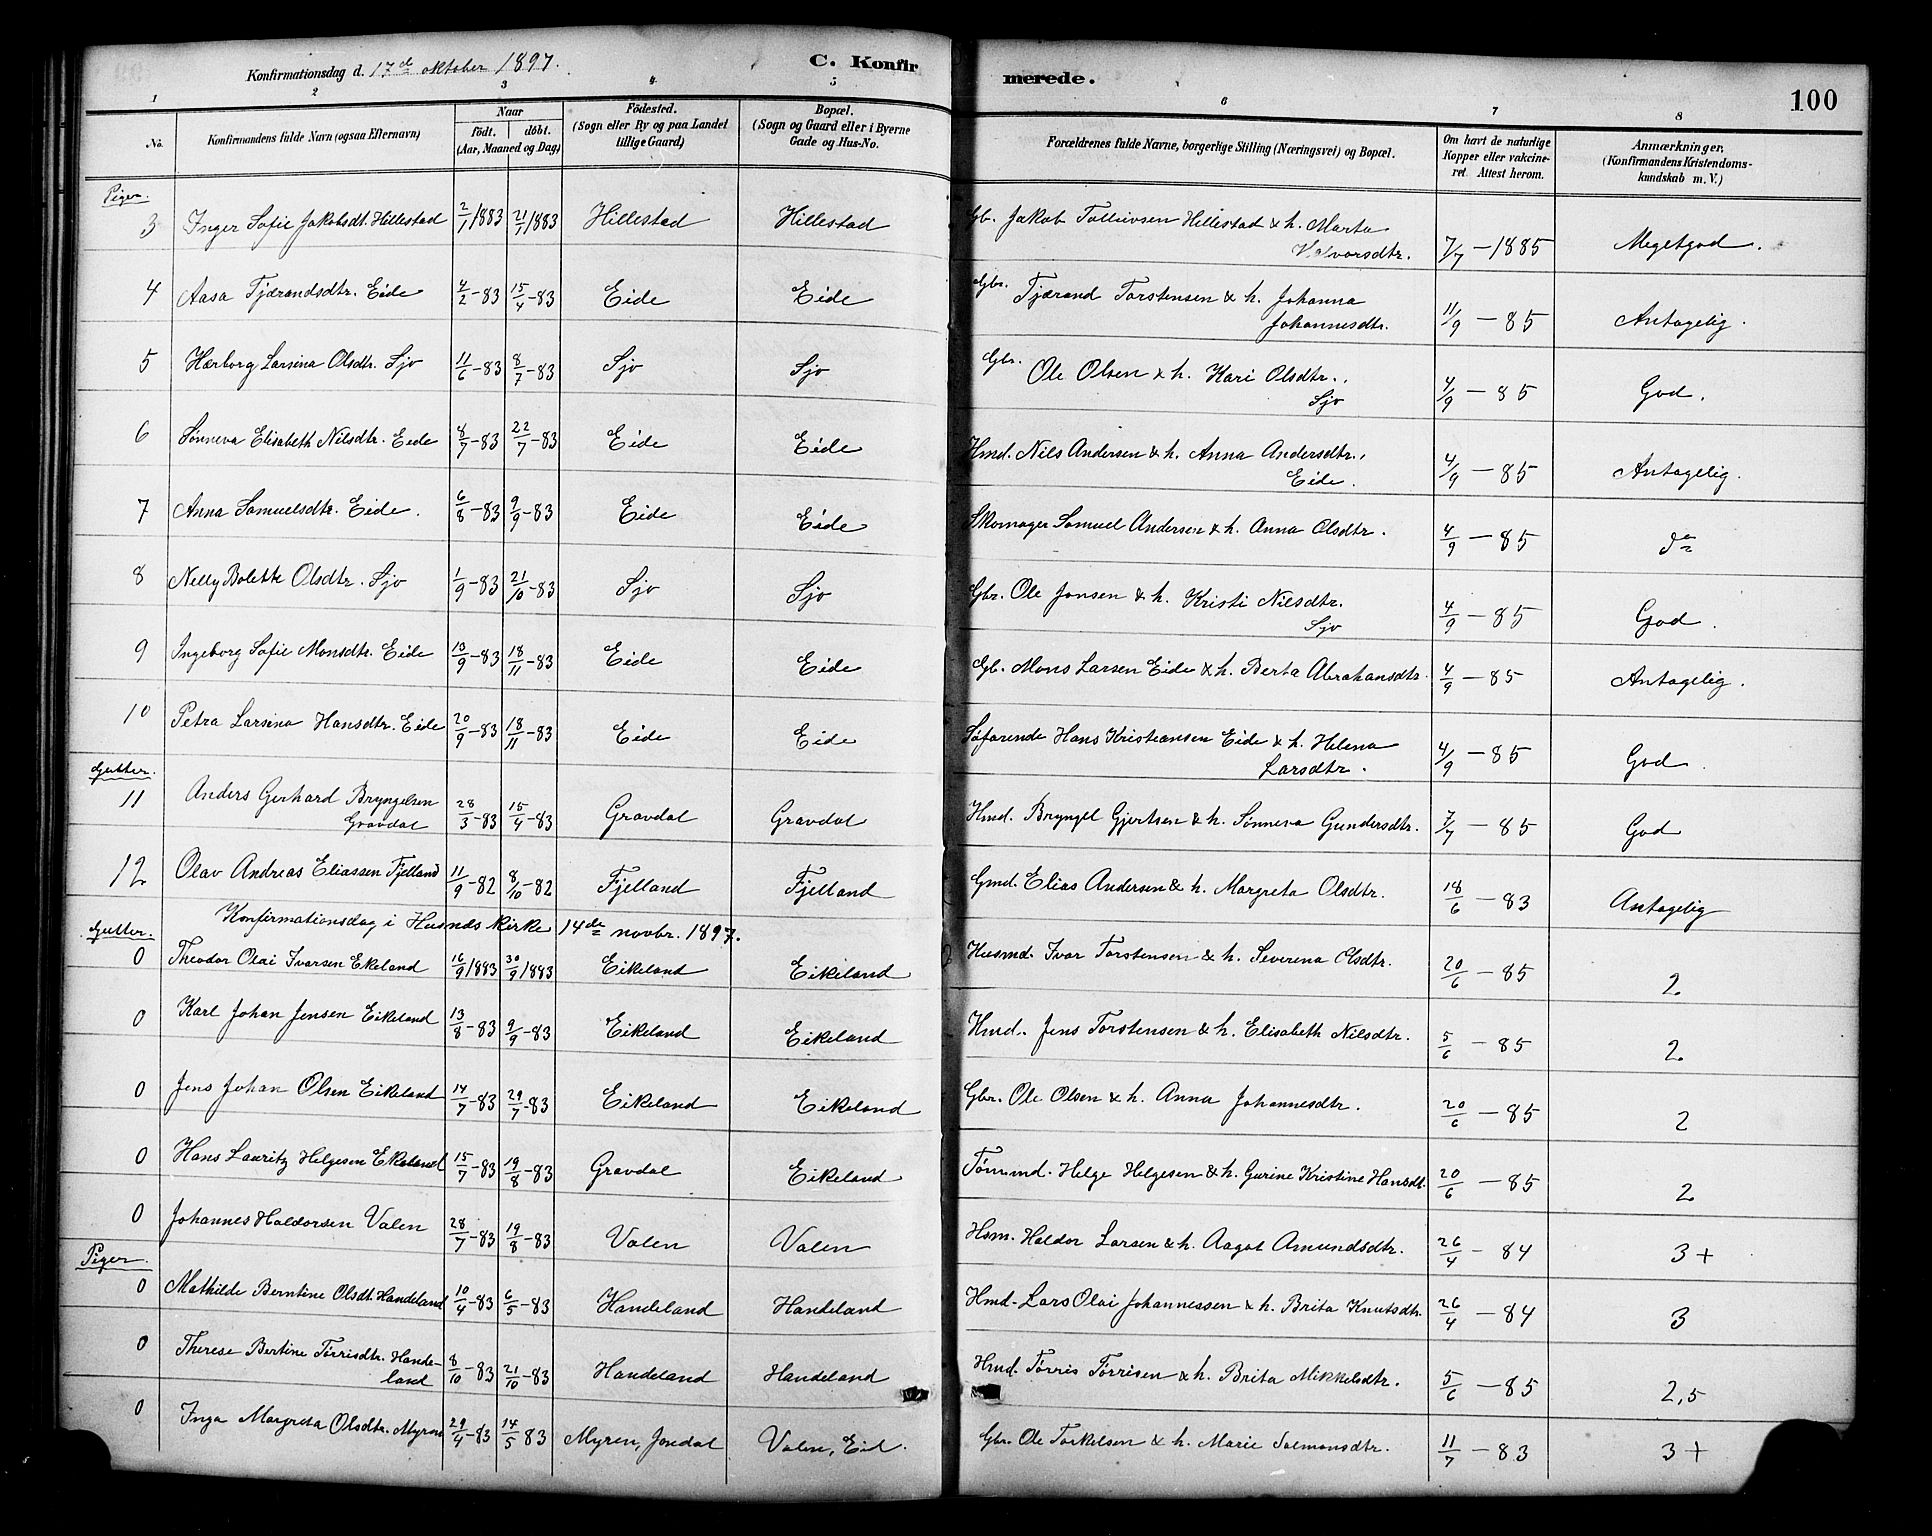 Konfirmationsdag d. 17de oktober 1897.
C. Konfirmerede.
100
1 2 3 4 5 6 7 8
No.
Konfirmandens fulde Navn (ogsaa Efternavn)
Naar
födt. döbt.
(Aar, Maaned og Dag)
Födested.
(Sogn eller By og paa Landet
tillige Gaard)
Bopæl.
(Sogn og Gaard eller i Byerne
Gade og Hus-No.
Forældrenes fulde Navne, borgerlige Stilling (Næringsvei) og Bopæl.
Om havt de naturlige
Kopper eller vakcine-
ret. Attest herom.
Anmærkninger,
(Konfirmandens Kristendoms-
kundskab m. V.)
Piger.
3 Inger Sofie Jakobsdt. Hillestad 2/1 1883 21/1 1883 Hillestad Hillestad Gb. Jakob Tollevsen Hillestad & h. Marta
Halvorsdtr. 7/7 - 1885 Megetgod.
4 Aasa Tjærandsdtr. Eide 4/2 - 83 15/4 - 83 Eide Eide Gbr. Tjærand Torstensen & h. Johanna
Johannesdtr. 11/9 - 85 Antagelig.
5 Hærborg Larsina Olsdtr. Sjo 11/6 - 83 8/7 - 83 Sjo Sjo Gbr. Ole Olsen & h. Kari Olsdtr.,
Sjo 4/9 - 85 God.
6 Sønneva Elisabeth Nilsdtr. Eide 8/7 - 83 22/7 - 83 Eide Eide Hmd. Nils Andersen & h. Anna Andersdtr.,
Eide. 4/9 - 85 Antagelig.
7 Anna Samuelsdtr. Eide. 6/8 - 83 9/9 - 83 Eide Eide Skomager Samuel Andersen & h. Anna Olsdtr. 4/9 - 85 do
8 Nelly Bolette Olsdtr. Sjo 1/9 - 83 21/10 - 83 Sjo Sjo Gbr. Ole Jonsen & h. Kristi Nilsdtr.
Sjo 4/9 - 85 God.
9 Ingeborg Sofie Monsdtr. Eide 13/9 - 83 18/11 - 83 Eide Eide Gb. Mons Larsen Eide & h. Berta Abrahamsdtr. 4/9 - 85 Antagelig.
10 Petra Larsina Hansdtr. Eide 20/9 - 83 18/11 - 83 Eide Eide Søfarende Hans Kristiansen Eide & h. Helena
Larsdtr. 4/9 - 85 God.
Gutter.
11 Anders Gerhard Bryngelsen
Gravdal 28/3 - 83 15/4 - 83 Gravdal Gravdal Hmd. Bryngel Gjertsen & h. Sønneva Gundersdtr. 7/7 - 85 God
12 Olav Andreas Eliassen Fjelland 11/9 - 82 8/10 - 82 Fjelland Fjelland Gmd. Elias Andersen & h. Margreta Olsdtr. 18/6 - 83 Antagelig
Konfirmationsdag i Husnes Kirke 14de novbr. 1897.
Gutter.
0 Theodor Olai Ivarsen Ekeland 16/9 1883 30/9 1883 Eikeland Eikeland Husmd. Ivar Torstensen & h. Severina Olsdtr. 20/6 - 85 2
0 Karl Johan Jensen Eikeland 13/8 - 83 9/9 - 83 Eikeland Eikeland Hmd. Jens Torstensen & h. Elisabeth Nilsdtr. 5/6 - 85 2
0 Jens Johan Olsen Eikeland 14/7 - 83 29/7 - 83 Eikeland Eikeland Gbr. Ole Olsen & h. Anna Johannesdtr. 20/6 - 85 2
0 Hans Lauritz Helgesen Ekeland 15/7 - 83 19/8 - 83 Gravdal Eikeland Tømmd. Helge Helgesen & h. Gurine Kristine Hansdt. 20/6 - 85 2
0 Johannes Haldorsen Valen 28/7 - 83 19/8 - 83 Valen Valen Hsm. Haldor Larsen & h. Aagot Amundsdtr. 26/4 - 84 3 +
Piger.
0 Mathilde Berntine Olsdt. Handeland 10/4 - 83 6/5 - 83 Handeland Handeland Hmd. Lars Olai Johannessen & h. Brita Knutsdtr. 26/4 - 84 3
0 Therese Bertine Tørrisdtr. Hande-
land 8/10 - 83 21/10 - 83 Handeland Handeland Hmd. Tørris Tørrisen & h. Brita Mikkelsdtr. 5/6 - 85 2,5
0 Inga Margreta Olsdtr. Myren 29/4 - 83 14/5 83 Myren, Jondal Valen, Eid. Gbr. Ole Torkelsen & h. Marie Salmonsdtr. 11/7 - 83 3 +